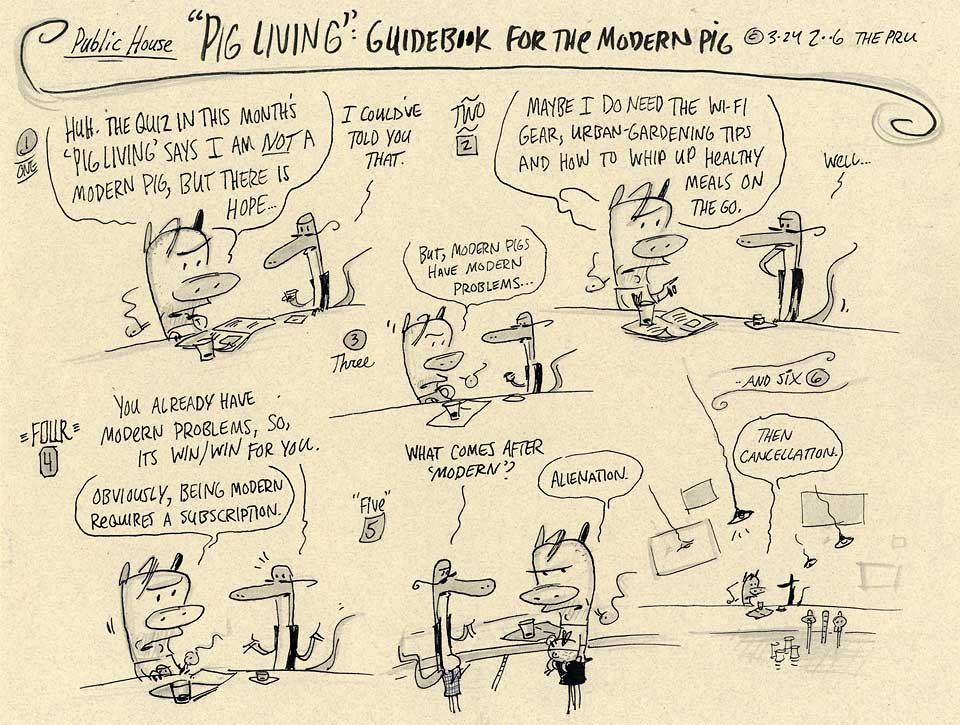 Public House "PIG LIVING": GUIDEBOOK FOR THE MODERN PIG © 3·24 2··6 THE PRU
1
ONE
HUH. THE QUIZ IN THIS MONTH'S
'PIG LIVING' SAYS I AM NOT A
MODERN PIG, BUT THERE IS
HOPE...
I COULD'VE
TOLD YOU
THAT.
TWO
2
MAYBE I DO NEED THE WI-FI
GEAR, URBAN-GARDENING TIPS
AND HOW TO WHIP UP HEALTHY
MEALS ON
THE GO.
WELL...
3
Three
BUT, MODERN PIGS
HAVE MODERN
PROBLEMS...
=FOUR=
4
YOU ALREADY HAVE
MODERN PROBLEMS, SO,
ITS WIN/WIN FOR YOU.
OBVIOUSLY, BEING MODERN
REQUIRES A SUBSCRIPTION.
"Five"
5
WHAT COMES AFTER
'MODERN'?
ALIENATION.
-AND SIX 6
THEN
CANCELLATION.